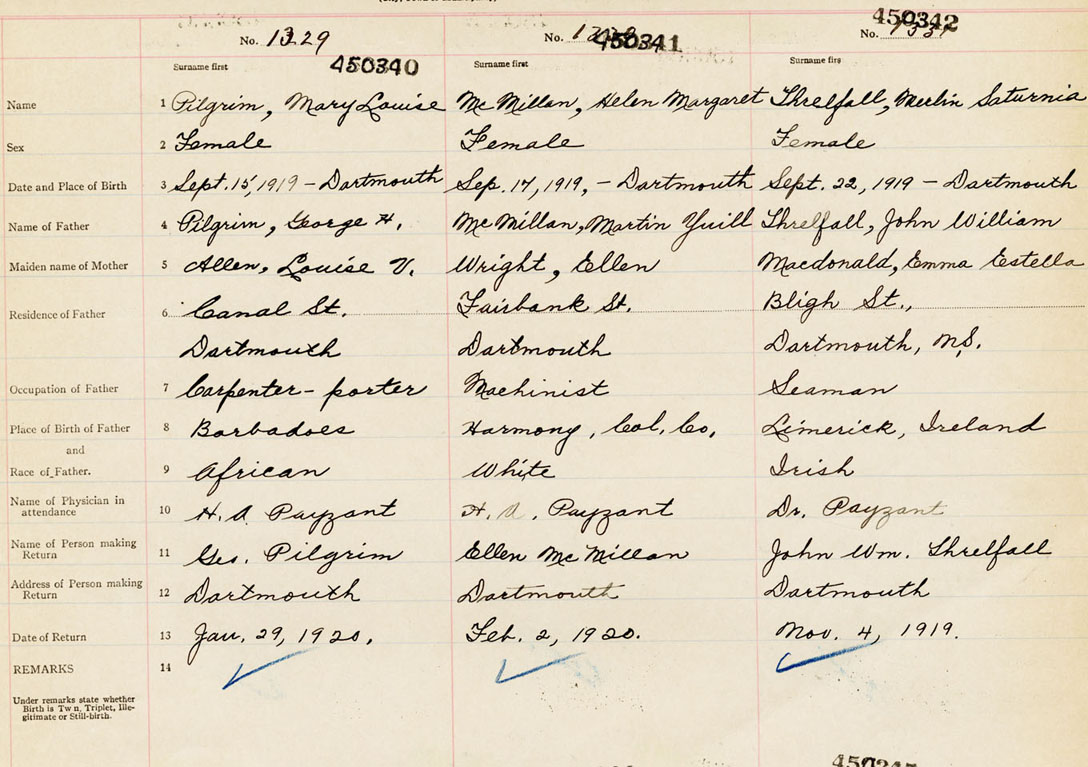 No. 1329
450340
Surname first
No.
450341
Surname first
450342
No.
Surname firs
Name 1 Pilgrim, Mary Louise McMillan, Helen Margaret Threlfall, Merlin Saturnia
Sex 2 Female Female Female
Date and Place of Birth 3 Sept. 15, 1919 - Dartmouth Sep. 17, 1919, - Dartmouth Sept. 22, 1919 - Dartmouth
Name of Father 4 Pilgrim, George H. McMillan, Martin Yuill Threlfall, John William
Maiden name of Mother 5 Allen, Louise V. Wright, Ellen Macdonald, Emma Estella
Residence of Father 6 Canal St. Fairbank St. Bligh St.,
Dartmouth Dartmouth Dartmouth, N.S.
Occupation of Father 7 Carpenter - porter Machinist Seaman
Place of Birth of Father 8 Barbadoes Harmony, Col. Co. Limerick, Ireland
and
Race of Father. 9 African White Irish
Name of Physician in
attendance 10 H. A. Payzant H. A. Payzant Dr. Payzant
Name of Person making
Return 11 Geo. Pilgrim Ellen McMillan John Wm. Threlfall
Address of Person making
Return 12 Dartmouth Dartmouth Dartmouth
Date of Return 13 Jan. 29, 1920. Feb. 2, 1920. Nov. 4, 1919.
REMARKS 14
Under remarks state whether
Birth is Tw n, Triplet, Ille-
gitimate or Still-birth.